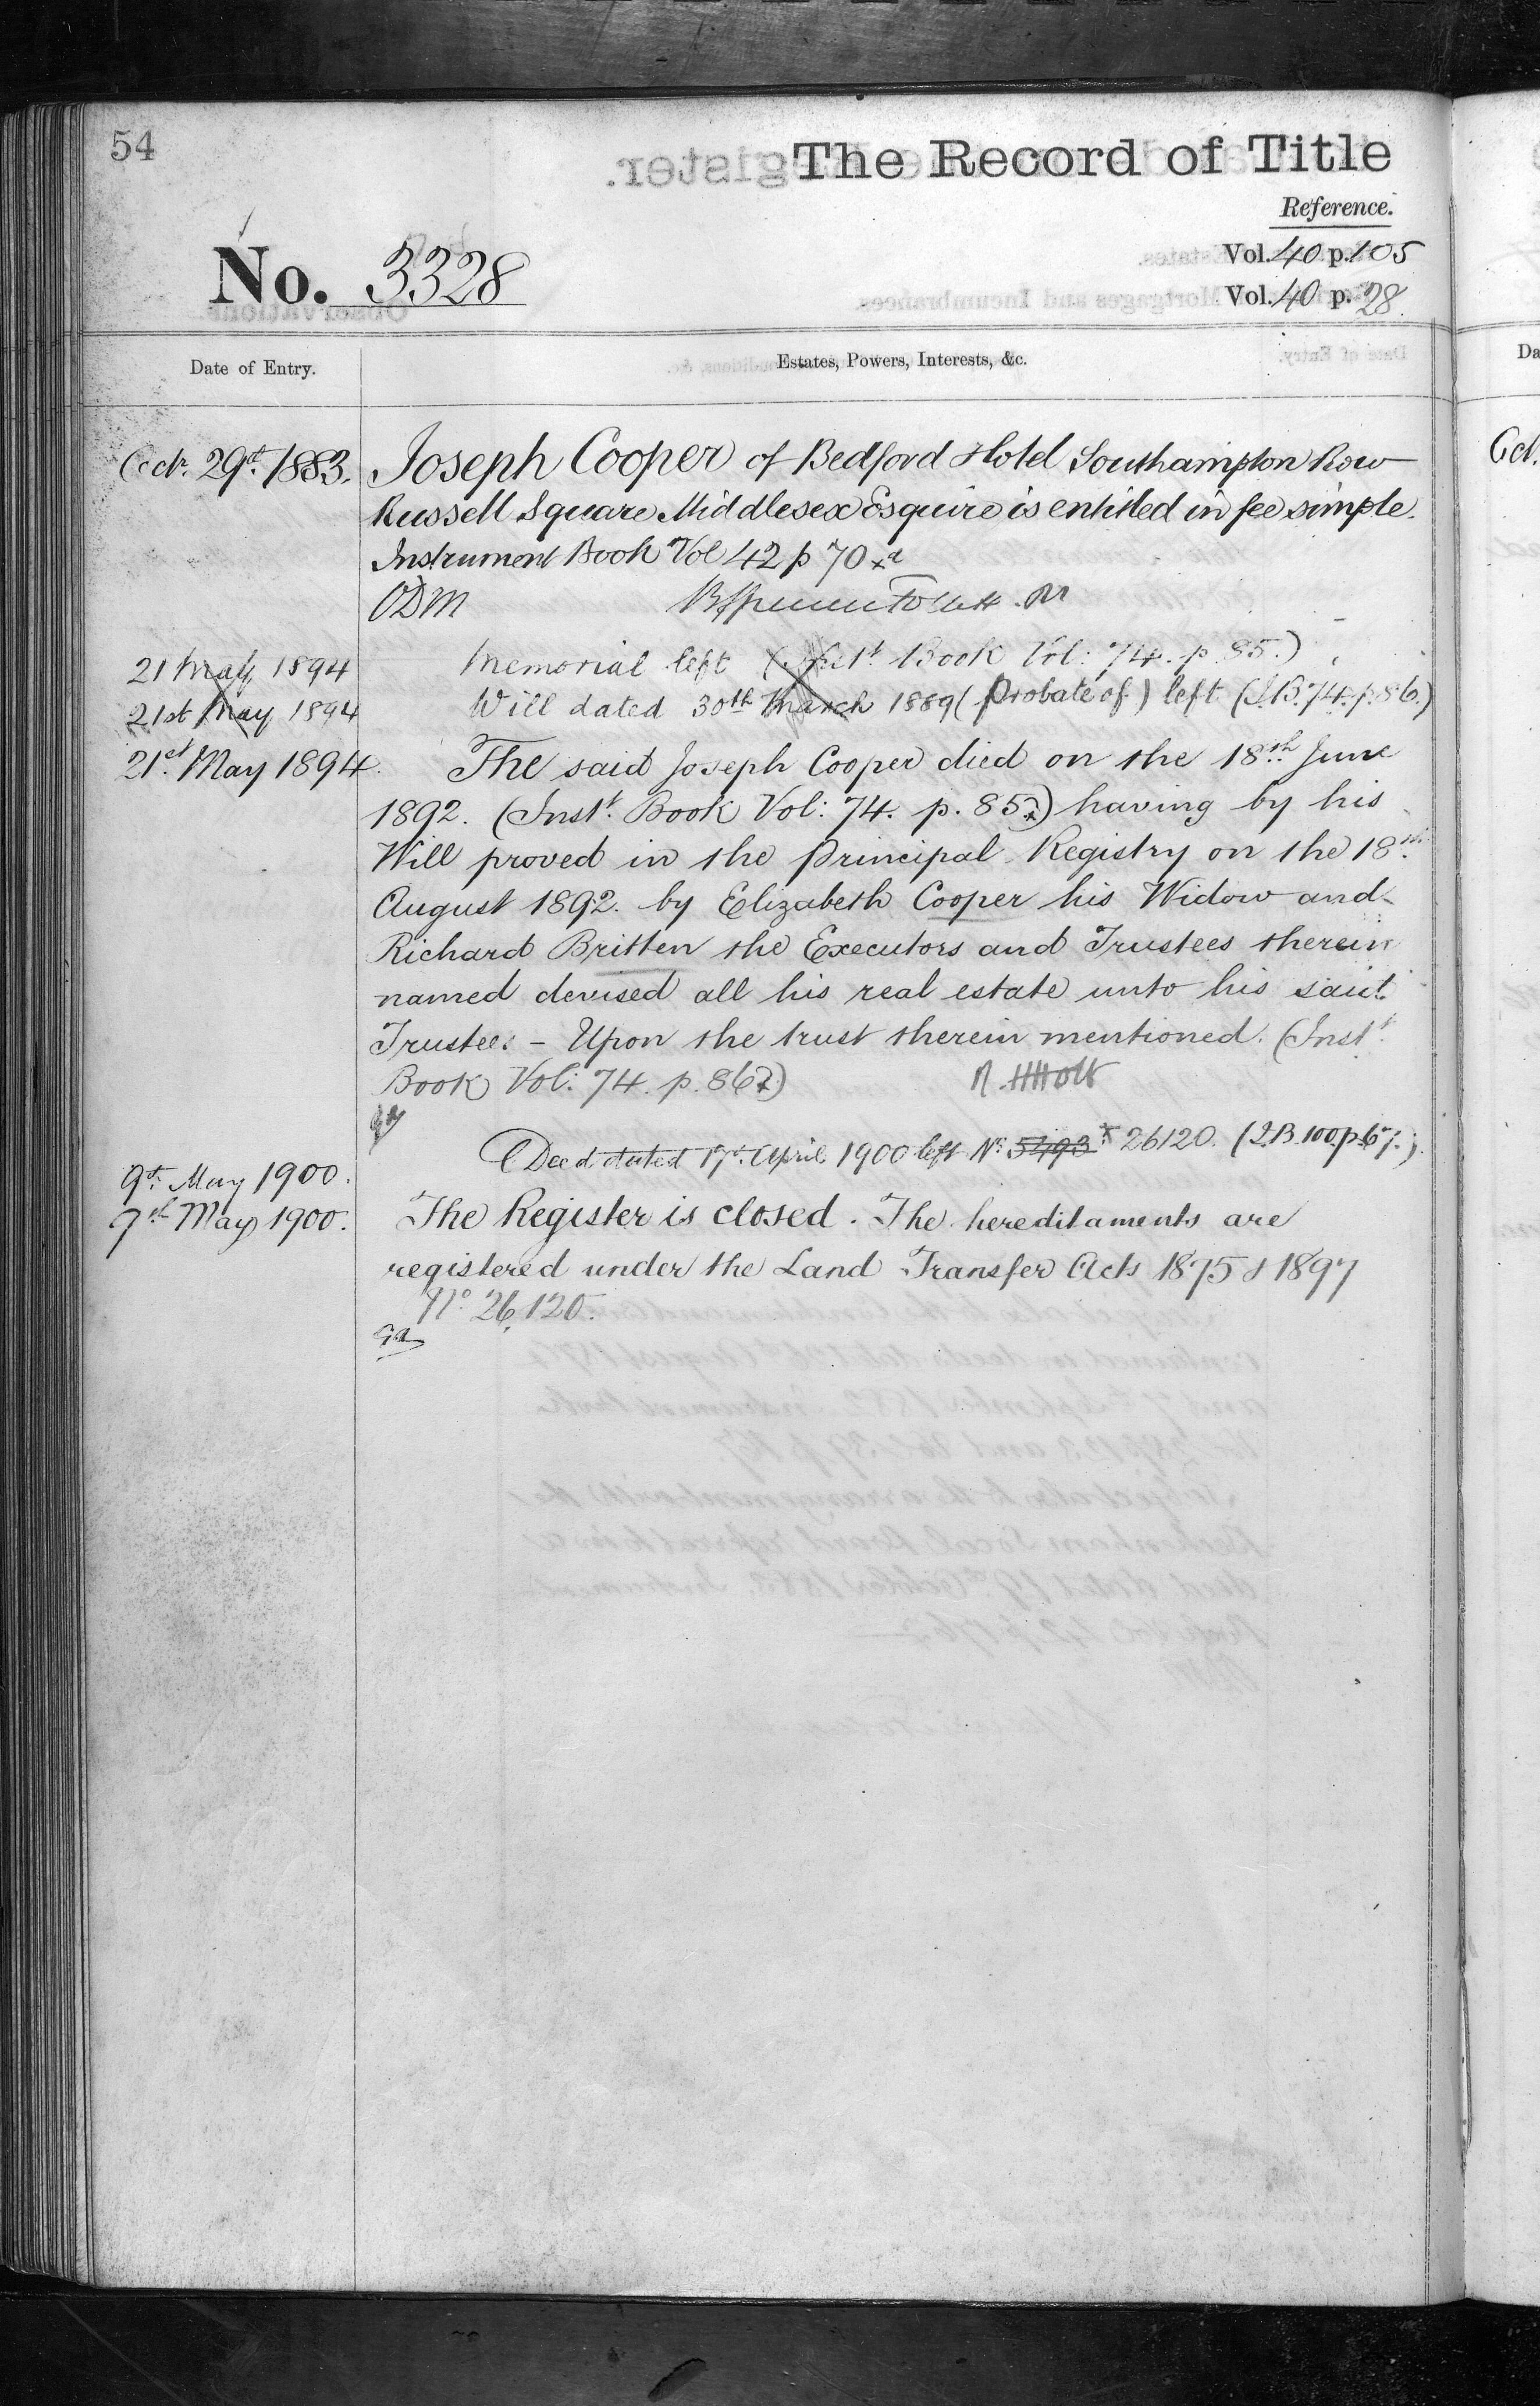 54
The Record of Title
Reference.
Vol. 40 p. 105
No. 3328
Vol. 40 p. 28.
Date of Entry.
Estates, Powers, Interests, &c.
Da
Octr. 29th. 1883.
Joseph Cooper of Bedford Hotel Southampton Row
Oct.
Russell Square Middlesex Esquire is entitled in fee simple.
Instrument Book Vol 42 p 70 x a
ODM
21 May 1894
Memorial left (Inst. Book Vol: 74. p. 85.)
21st May 1894
Will dated 30th March 1889 (Probate of) left (I.B. 74. p. 86.)
21st. May 1894.
The said Joseph Cooper died on the 18th. June
1892. (Inst. Book Vol: 74. p. 85.) having by his
Will proved in the Principal Registry on the 18th.
August 1892. by Elizabeth Cooper his Widow and
Richard Britten the Executors and Trustees therein
named devised all his real estate unto his said
Trustees - Upon the trust therein mentioned. (Inst.
Book Vol: 74. p. 86.)
R. H Holt
9th. May 1900.
Deed dated 17th. April 1900 left No. 5493 * 26120. (I.B. 100. p. 67.)
9th May 1900.
The Register is closed. The hereditaments are
registered under the Land Transfer Acts 1875 & 1897
No. 26,120.